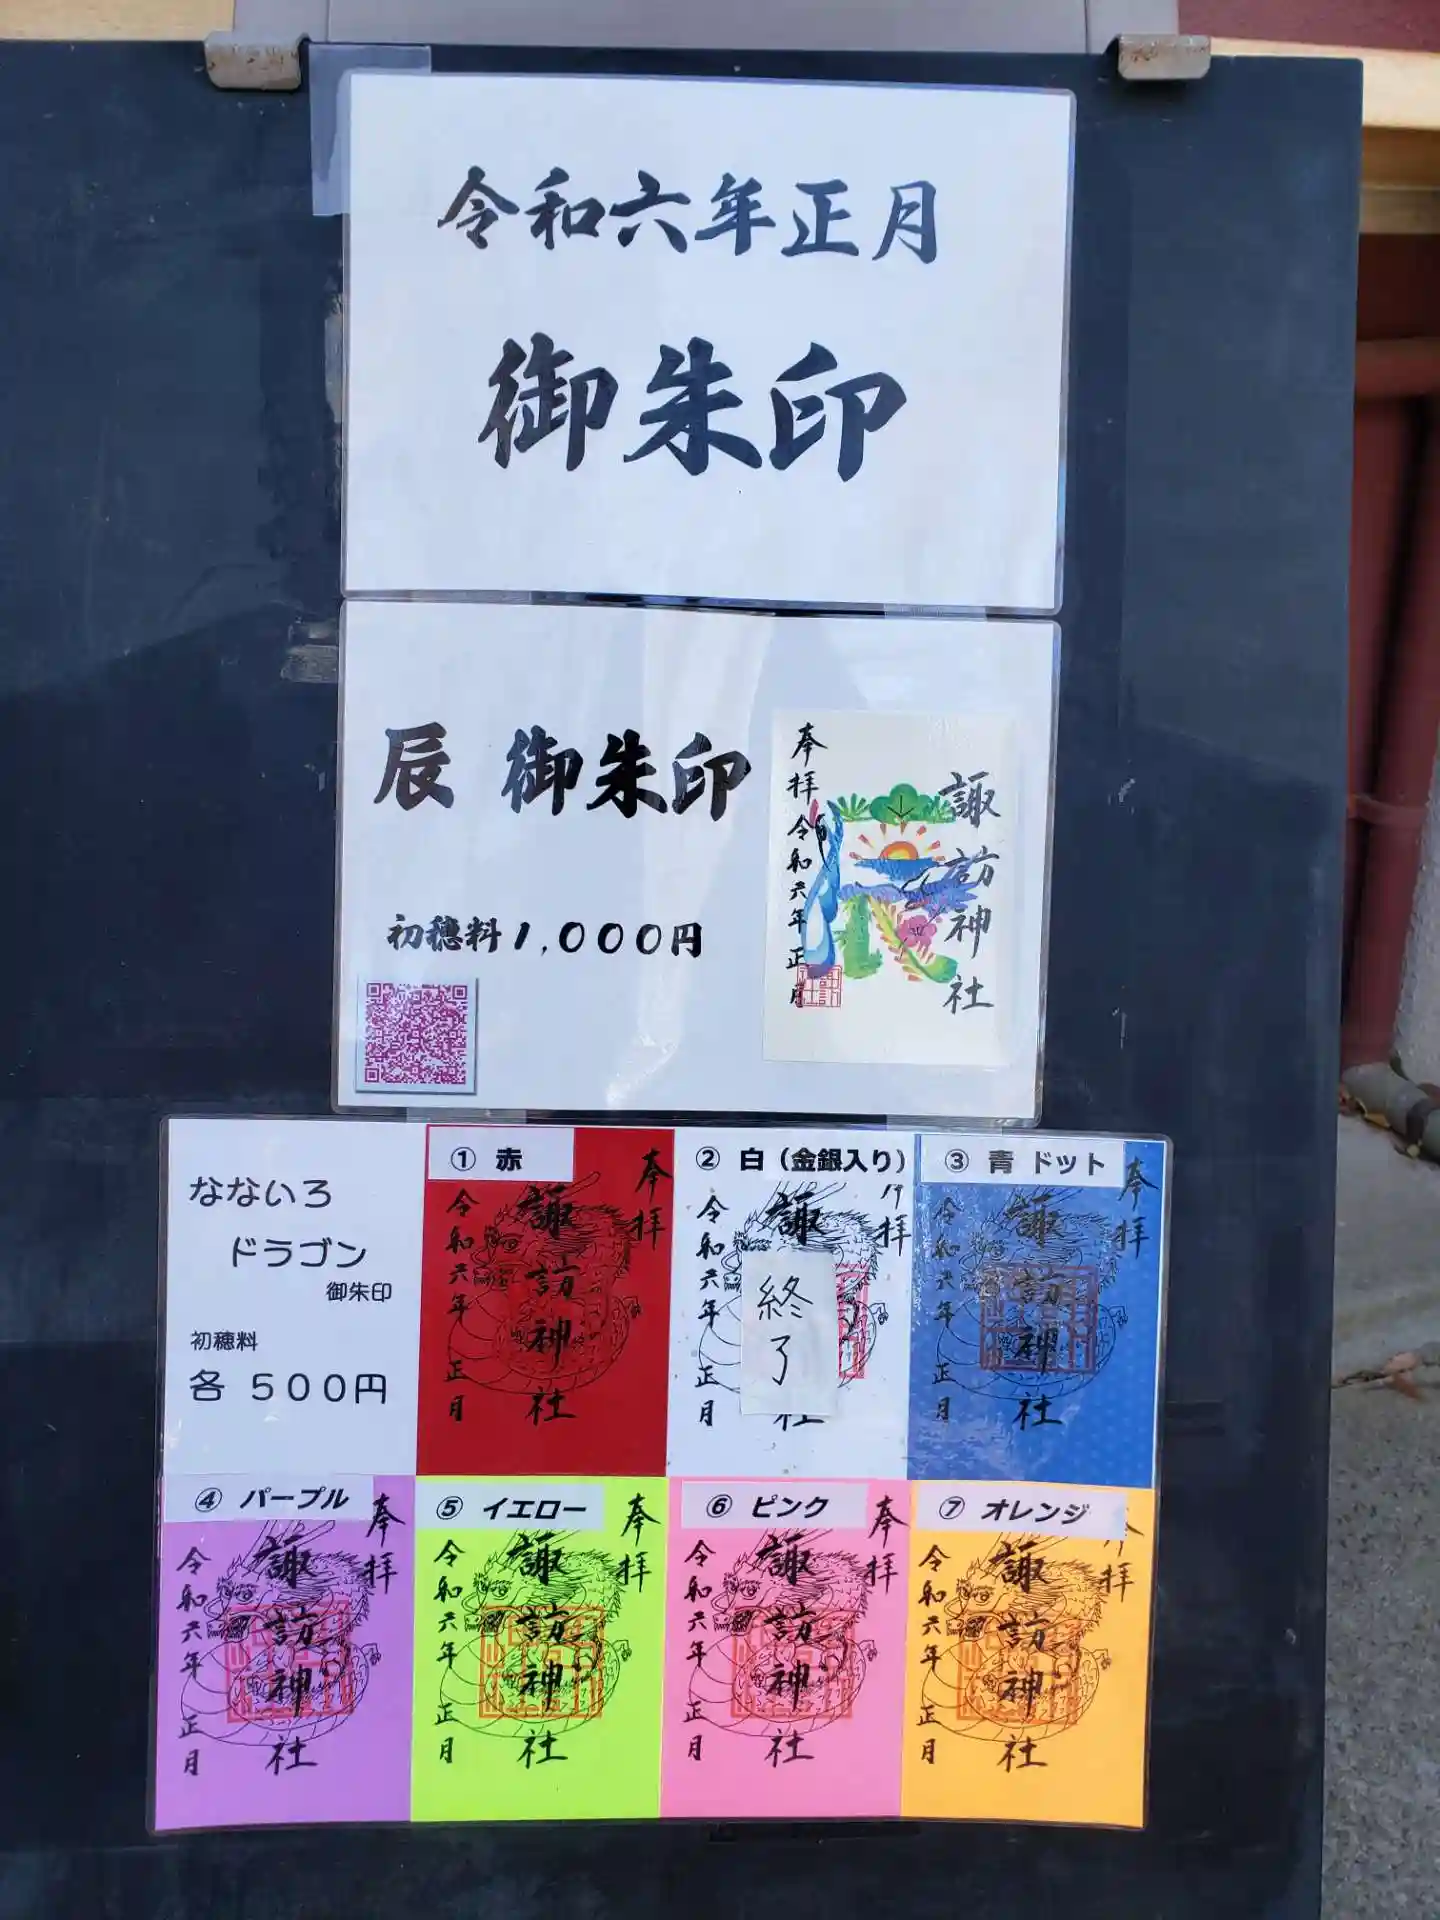 令和六年正月
御朱印
辰 御朱印
初穂料1,000円
奉拝
令和六年正月
諏訪神社
なないろ
ドラゴン
御朱印
初穂料
各 500円
① 赤
奉拝
諏訪神社
令和六年 正月
② 白（金銀入り）
奉拝
諏
社
終了
令和六年 正月
③ 青 ドット
奉拝
諏訪神社
令和六年 正月
④ パープル
奉拝
諏訪神社
令和六年 正月
⑤ イエロー
奉拝
諏訪神社
令和六年 正月
⑥ ピンク
奉拝
諏訪神社
令和六年 正月
⑦ オレンジ
奉拝
諏訪神社
令和六年 正月